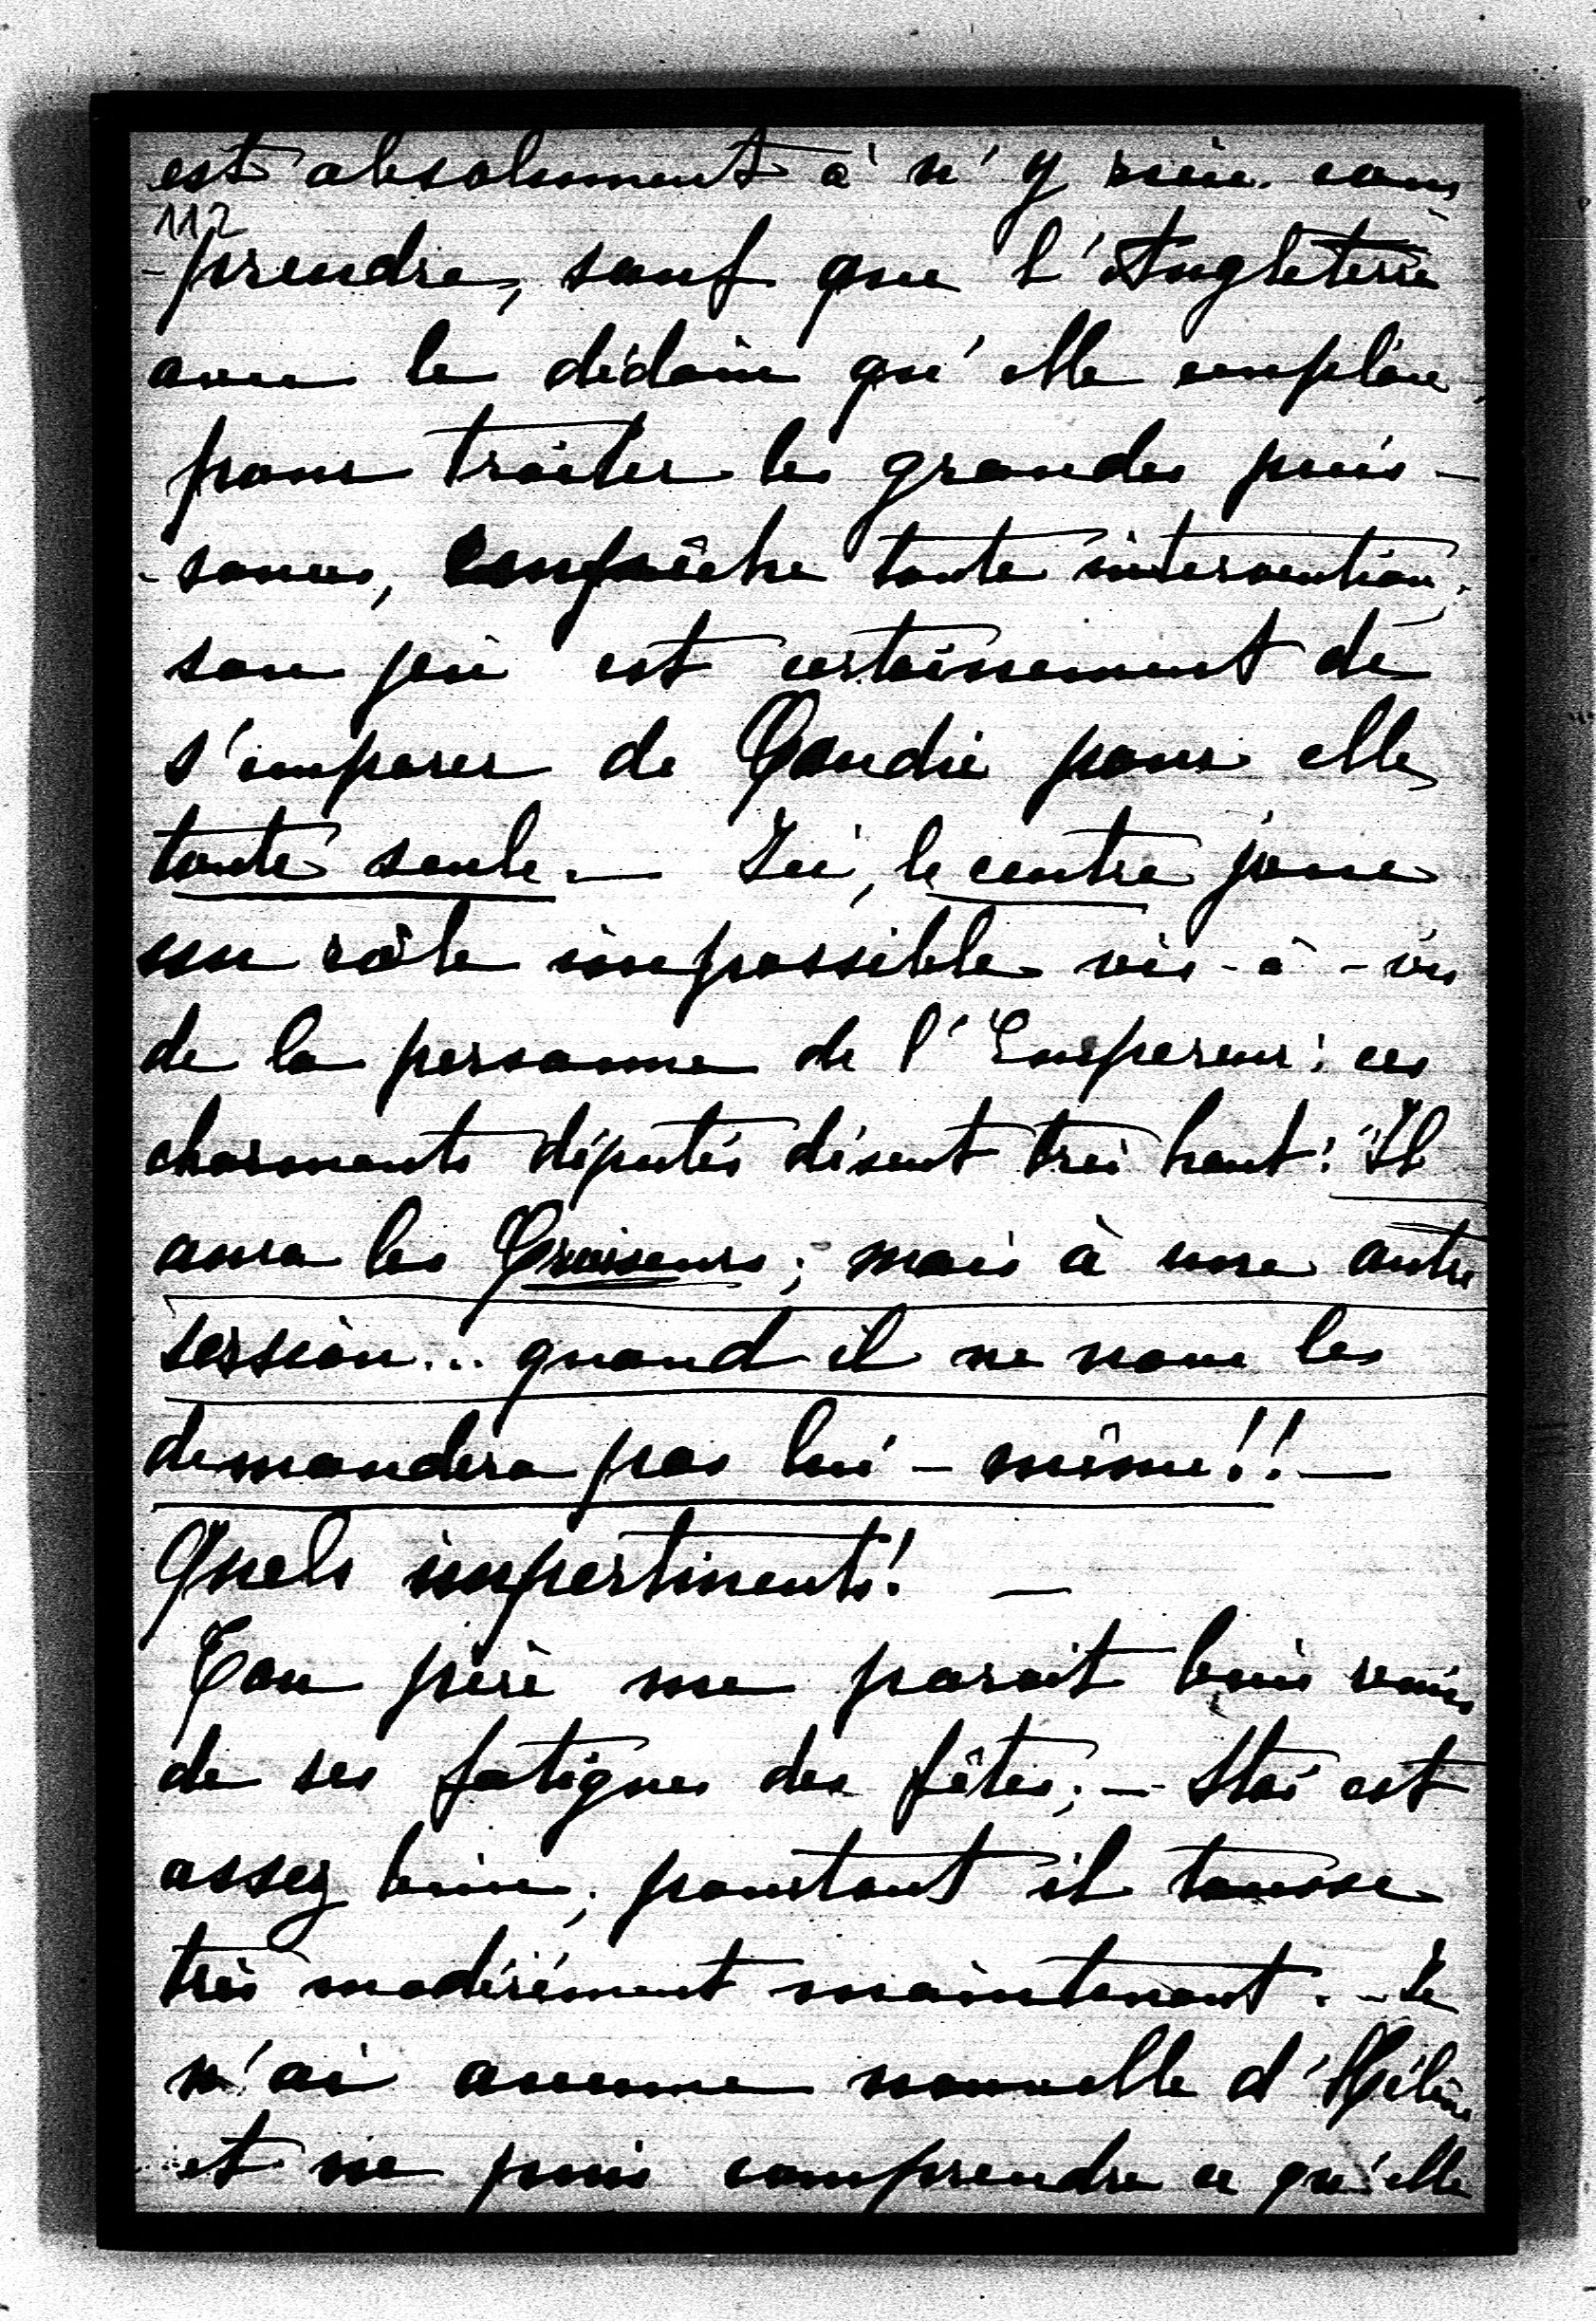 est absolument à n'y rien com
112
-prendre, sauf que l'Angleterre
avec le dédain qu'elle emploie
pour traiter les grandes puis-
-sances, empêche toute intervention;
son jeu est certainement de
s'emparer de Candie pour elle
toute seule. — Ici, le centre joue
un rôle impossible vis-à-vis
de la personne de l'Empereur: ces
charmants députés disent très haut: Il
aura les Croiseurs; mais à une autre
session... quand il ne nous les
demandera pas lui-même!! —
Quels impertinents! —
Ton père me parait bien remis
de ses fatigues des fêtes; — Stas est
assez bien; pourtant il tousse
très modérément maintenant. — Je
n'ai aucune nouvelle d'Hélène
et ne puis comprendre ce qu'elle